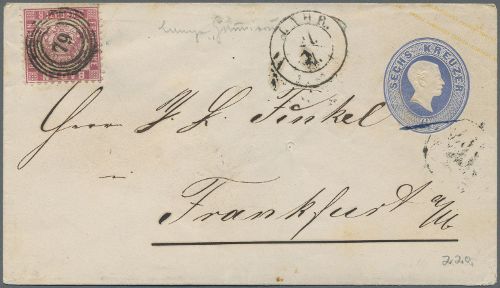 79
LAHR.
SECHS KREUZER
Herrn J. L. Finkel
Frankfurt a/M
2.20.